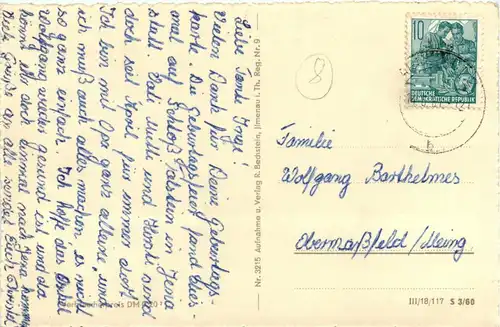 Liebe Tante Inge!
Vielen Dank für Deine Geburtstags-
karte. Die Geburtstagsfeier fand dies-
mal auf Schloß in Jena
statt. Mutti und Horst sind
doch seit April für immer dort.
Ich bin mit Opa ganz alleine, und
ich muß auch alles machen, es ist nicht
so ganz einfach. Ich hoffe das Onkel
Wolfgang wieder gesund ist und da
könnt ihr doch einmal nach Jena kommen.
Viele Grüße an alle sendet Euch
Verbraucherpreis DM 0,20
Nr. 3215 Aufnahme u. Verlag R. Bechstein, Jlmenau i. Th. Reg. Nr. 9
8
10
DEUTSCHE
DEMOKRATISCHE REPUBLIK
b
Familie
Wolfgang Barthelmes
Obermaßfeld / Meing
III/18/117 S 3/60